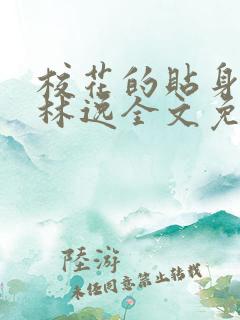 校花的贴身
林逸全文免
陸游
未经同意禁止转载